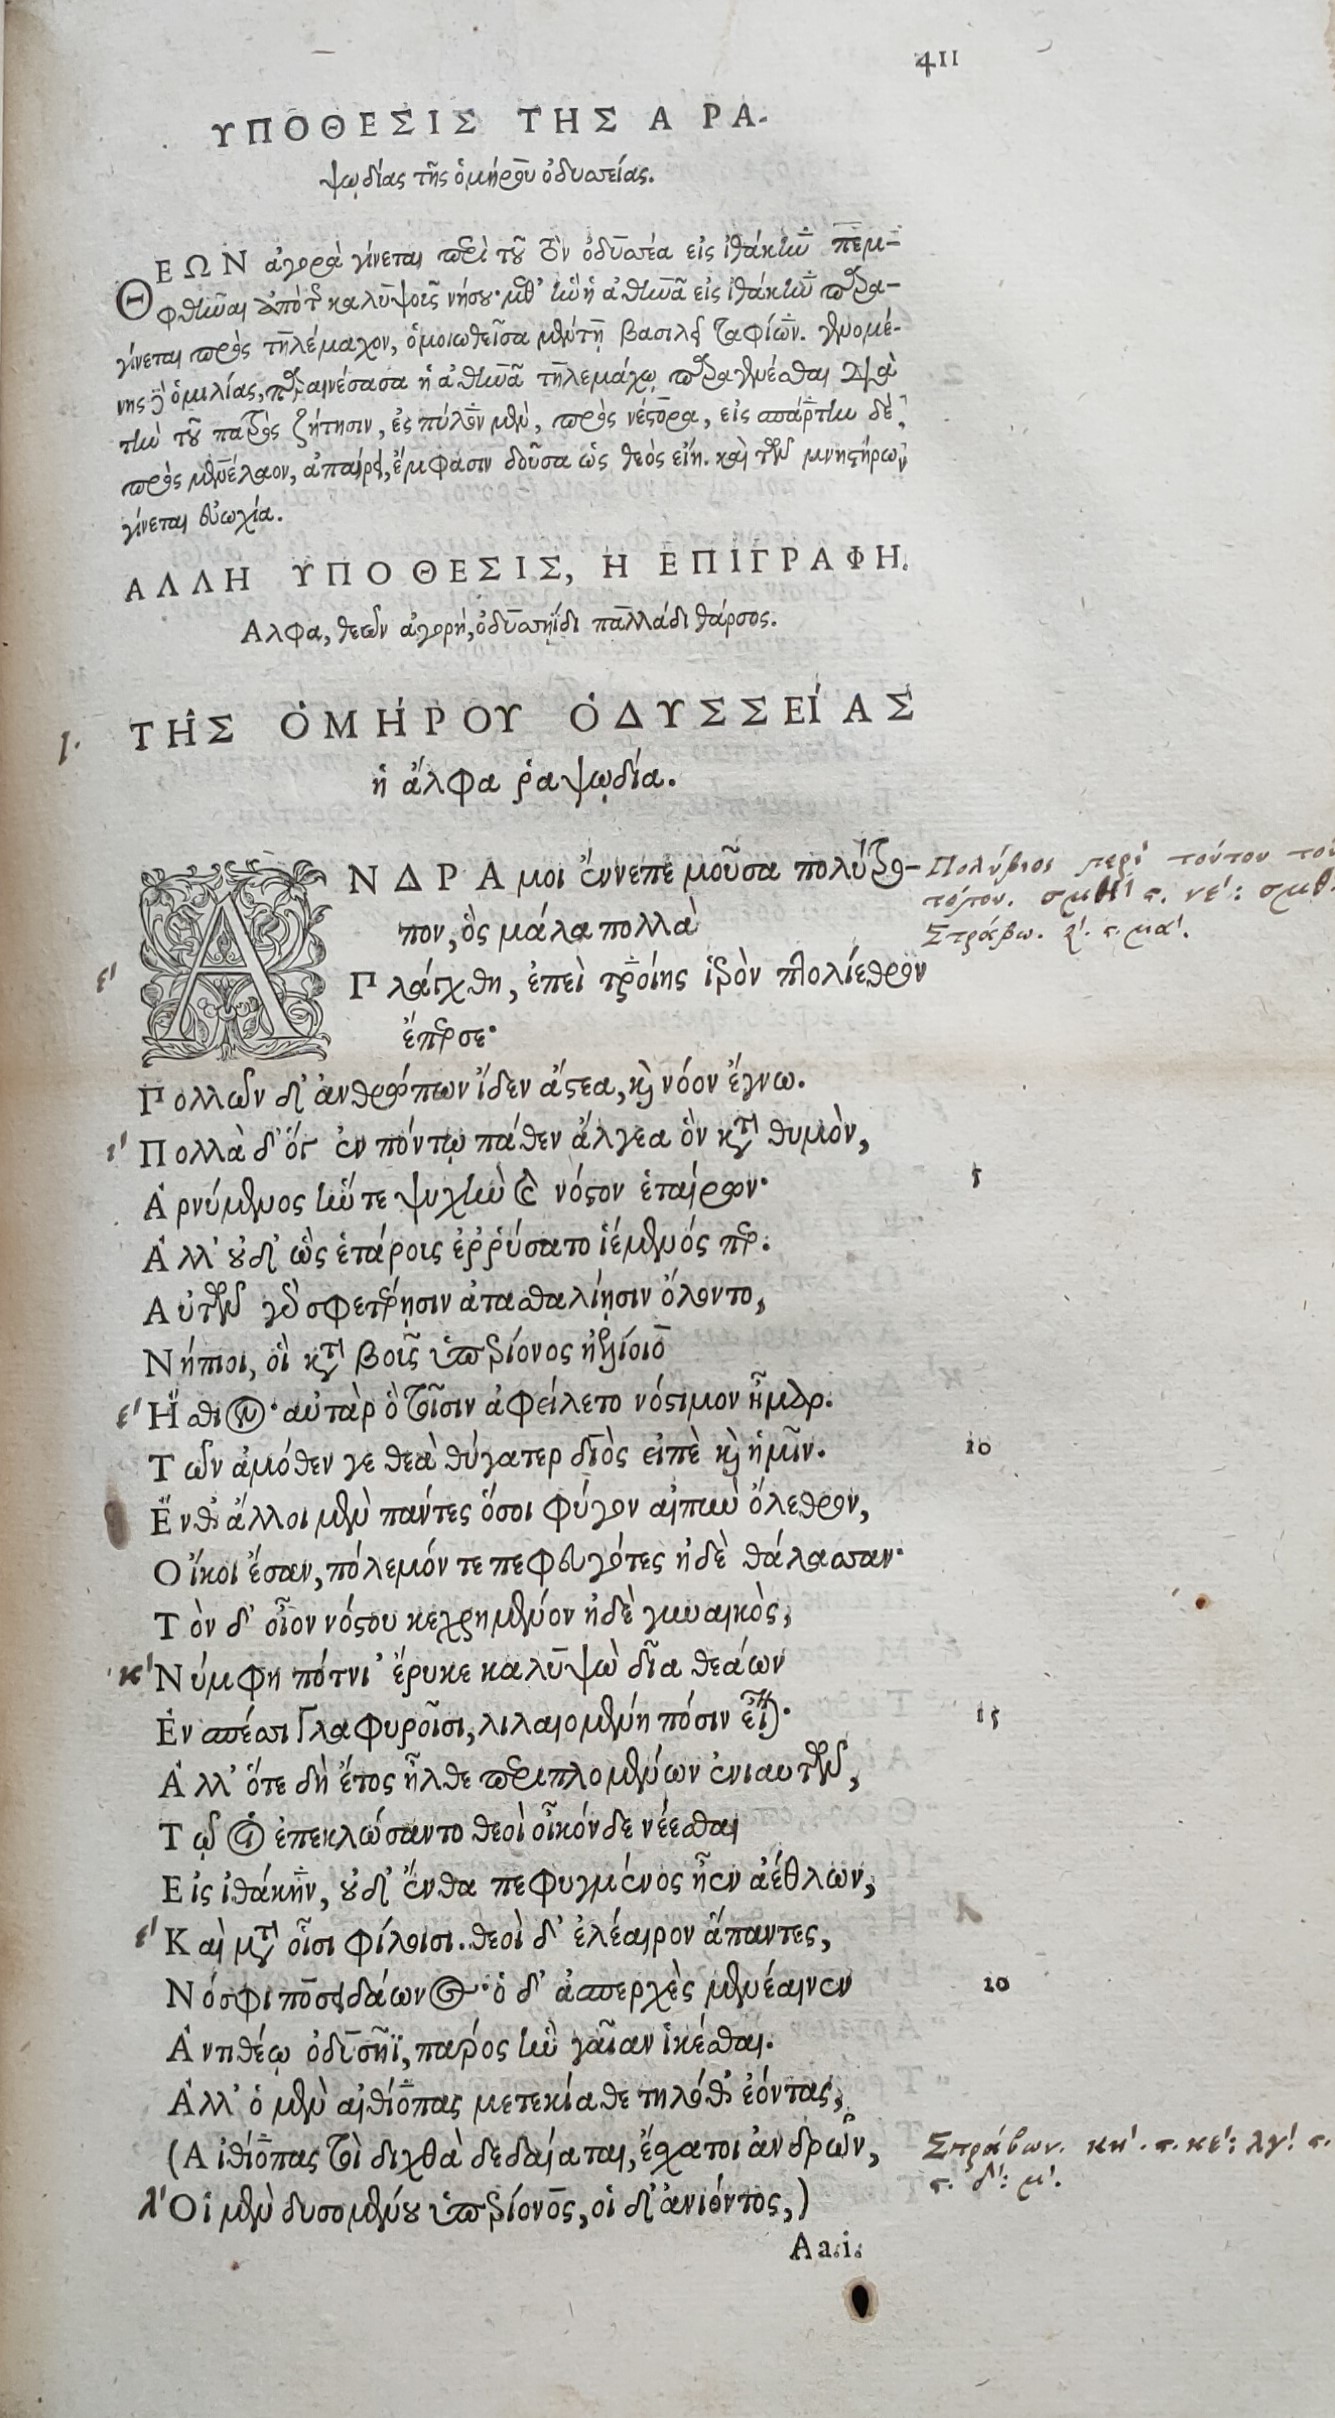 411
ΥΠΟΘΕΣΙΣ ΤΗΣ Α ΡΑ-
ψῳδίας τῆς ὁμήρου ὀδυσσείας.
ΘΕΩΝ ἀγορὰ γίνεται περὶ τοῦ τὸν ὀδυσσέα εἰς ἰθάκην πεμ-
φθῆναι ἀπὸ τῆς καλυψοῦς νήσου· μεθ' ἣν ἡ ἀθηνᾶ εἰς ἰθάκην παρα-
γίνεται πρὸς τηλέμαχον, ὁμοιωθεῖσα μέντῃ βασιλεῖ ταφίων. γενομέ-
νης δὲ ὁμιλίας, παραινέσασα ἡ ἀθηνᾶ τηλεμάχῳ παραγενέσθαι διὰ
τὴν τοῦ πατρὸς ζήτησιν, ἐς πύλον μὲν, πρὸς νέστορα, εἰς σπάρτην δὲ,
πρὸς μενέλαον, ἀπαίρει, ἔμφασιν δοῦσα ὡς θεὸς εἴη. καὶ τῶν μνηστήρων
γίνεται εὐωχία.
ΑΛΛΗ ΥΠΟΘΕΣΙΣ, Η ΕΠΙΓΡΑΦΗ.
Αλφα, θεῶν ἀγορή, ὀδυσσηΐδι παλλάδι θάρσος.
1. ΤΗ͂Σ ὉΜΉΡΟΥ ὈΔΥΣΣΕΊΑΣ
ἡ ἄλφα ῥαψῳδία.
ΑΝΔΡΑ μοι ἔννεπε μοῦσα πολύτρο- Πολύβιος περὶ τούτου τοῦ
πον, ὃς μάλα πολλὰ τόπου. σμη' ς. νε': σμθ.
Στράβω. λ'. ς. μα'.
ς' Πλάγχθη, ἐπεὶ τροίης ἱερὸν πτολίεθρον
ἔπερσε·
Πολλῶν δ' ἀνθρώπων ἴδεν ἄστεα, καὶ νόον ἔγνω.
ι' Πολλὰ δ' ὅγ' ἐν πόντῳ πάθεν ἄλγεα ὃν κατὰ θυμὸν,
Ἀρνύμενος ἥν τε ψυχὴν καὶ νόστον ἑταίρων· 5
Ἀλλ' οὐδ' ὣς ἑτάροις ἐῤῥύσατο ἱέμενός περ.
Αὐτῶν γὰρ σφετέρῃσιν ἀτασθαλίῃσιν ὄλοντο,
Νήπιοι, οἳ κατὰ βοῦς ὑπερίονος ἠελίοιο
ε' Ἤσθιον· αὐτὰρ ὃ τοῖσιν ἀφείλετο νόστιμον ἦμαρ.
Τῶν ἁμόθεν γε θεὰ θύγατερ διὸς εἰπὲ καὶ ἡμῖν. 10
Ἔνθ' ἄλλοι μὲν πάντες ὅσοι φύγον αἰπὺν ὄλεθρον,
Οἴκοι ἔσαν, πόλεμόν τε πεφευγότες ἠδὲ θάλασσαν·
Τὸν δ' οἶον νόστου κεχρημένον ἠδὲ γυναικὸς,
κ' Νύμφη πότνι' ἔρυκε καλυψὼ δῖα θεάων
Ἐν σπέσσι γλαφυροῖσι, λιλαιομένη πόσιν εἶναι· 15
Ἀλλ' ὅτε δὴ ἔτος ἦλθε περιπλομένων ἐνιαυτῶν,
Τῷ οἱ ἐπεκλώσαντο θεοὶ οἶκόνδε νέεσθαι
Εἰς ἰθάκην, οὐδ' ἔνθα πεφυγμένος ἦεν ἀέθλων,
ε' Καὶ μετὰ οἷσι φίλοισι. θεοὶ δ' ἐλέαιρον ἅπαντες,
Νόσφι ποσειδάωνος· ὁ δ' ἀσπερχὲς μενέαινεν 20
Ἀντιθέῳ ὀδυσῆϊ, πάρος ἣν γαῖαν ἱκέσθαι.
Ἀλλ' ὁ μὲν αἰθίοπας μετεκίαθε τηλόθ' ἐόντας,
(Αἰθίοπας τοὶ διχθὰ δεδαίαται, ἔσχατοι ἀνδρῶν, Στράβων. κη'. ς. κε': λγ'. ς.
ς. δ': μ'.
λ' Οἱ μὲν δυσομένου ὑπερίονος, οἱ δ' ἀνιόντος,)
Aa.i.